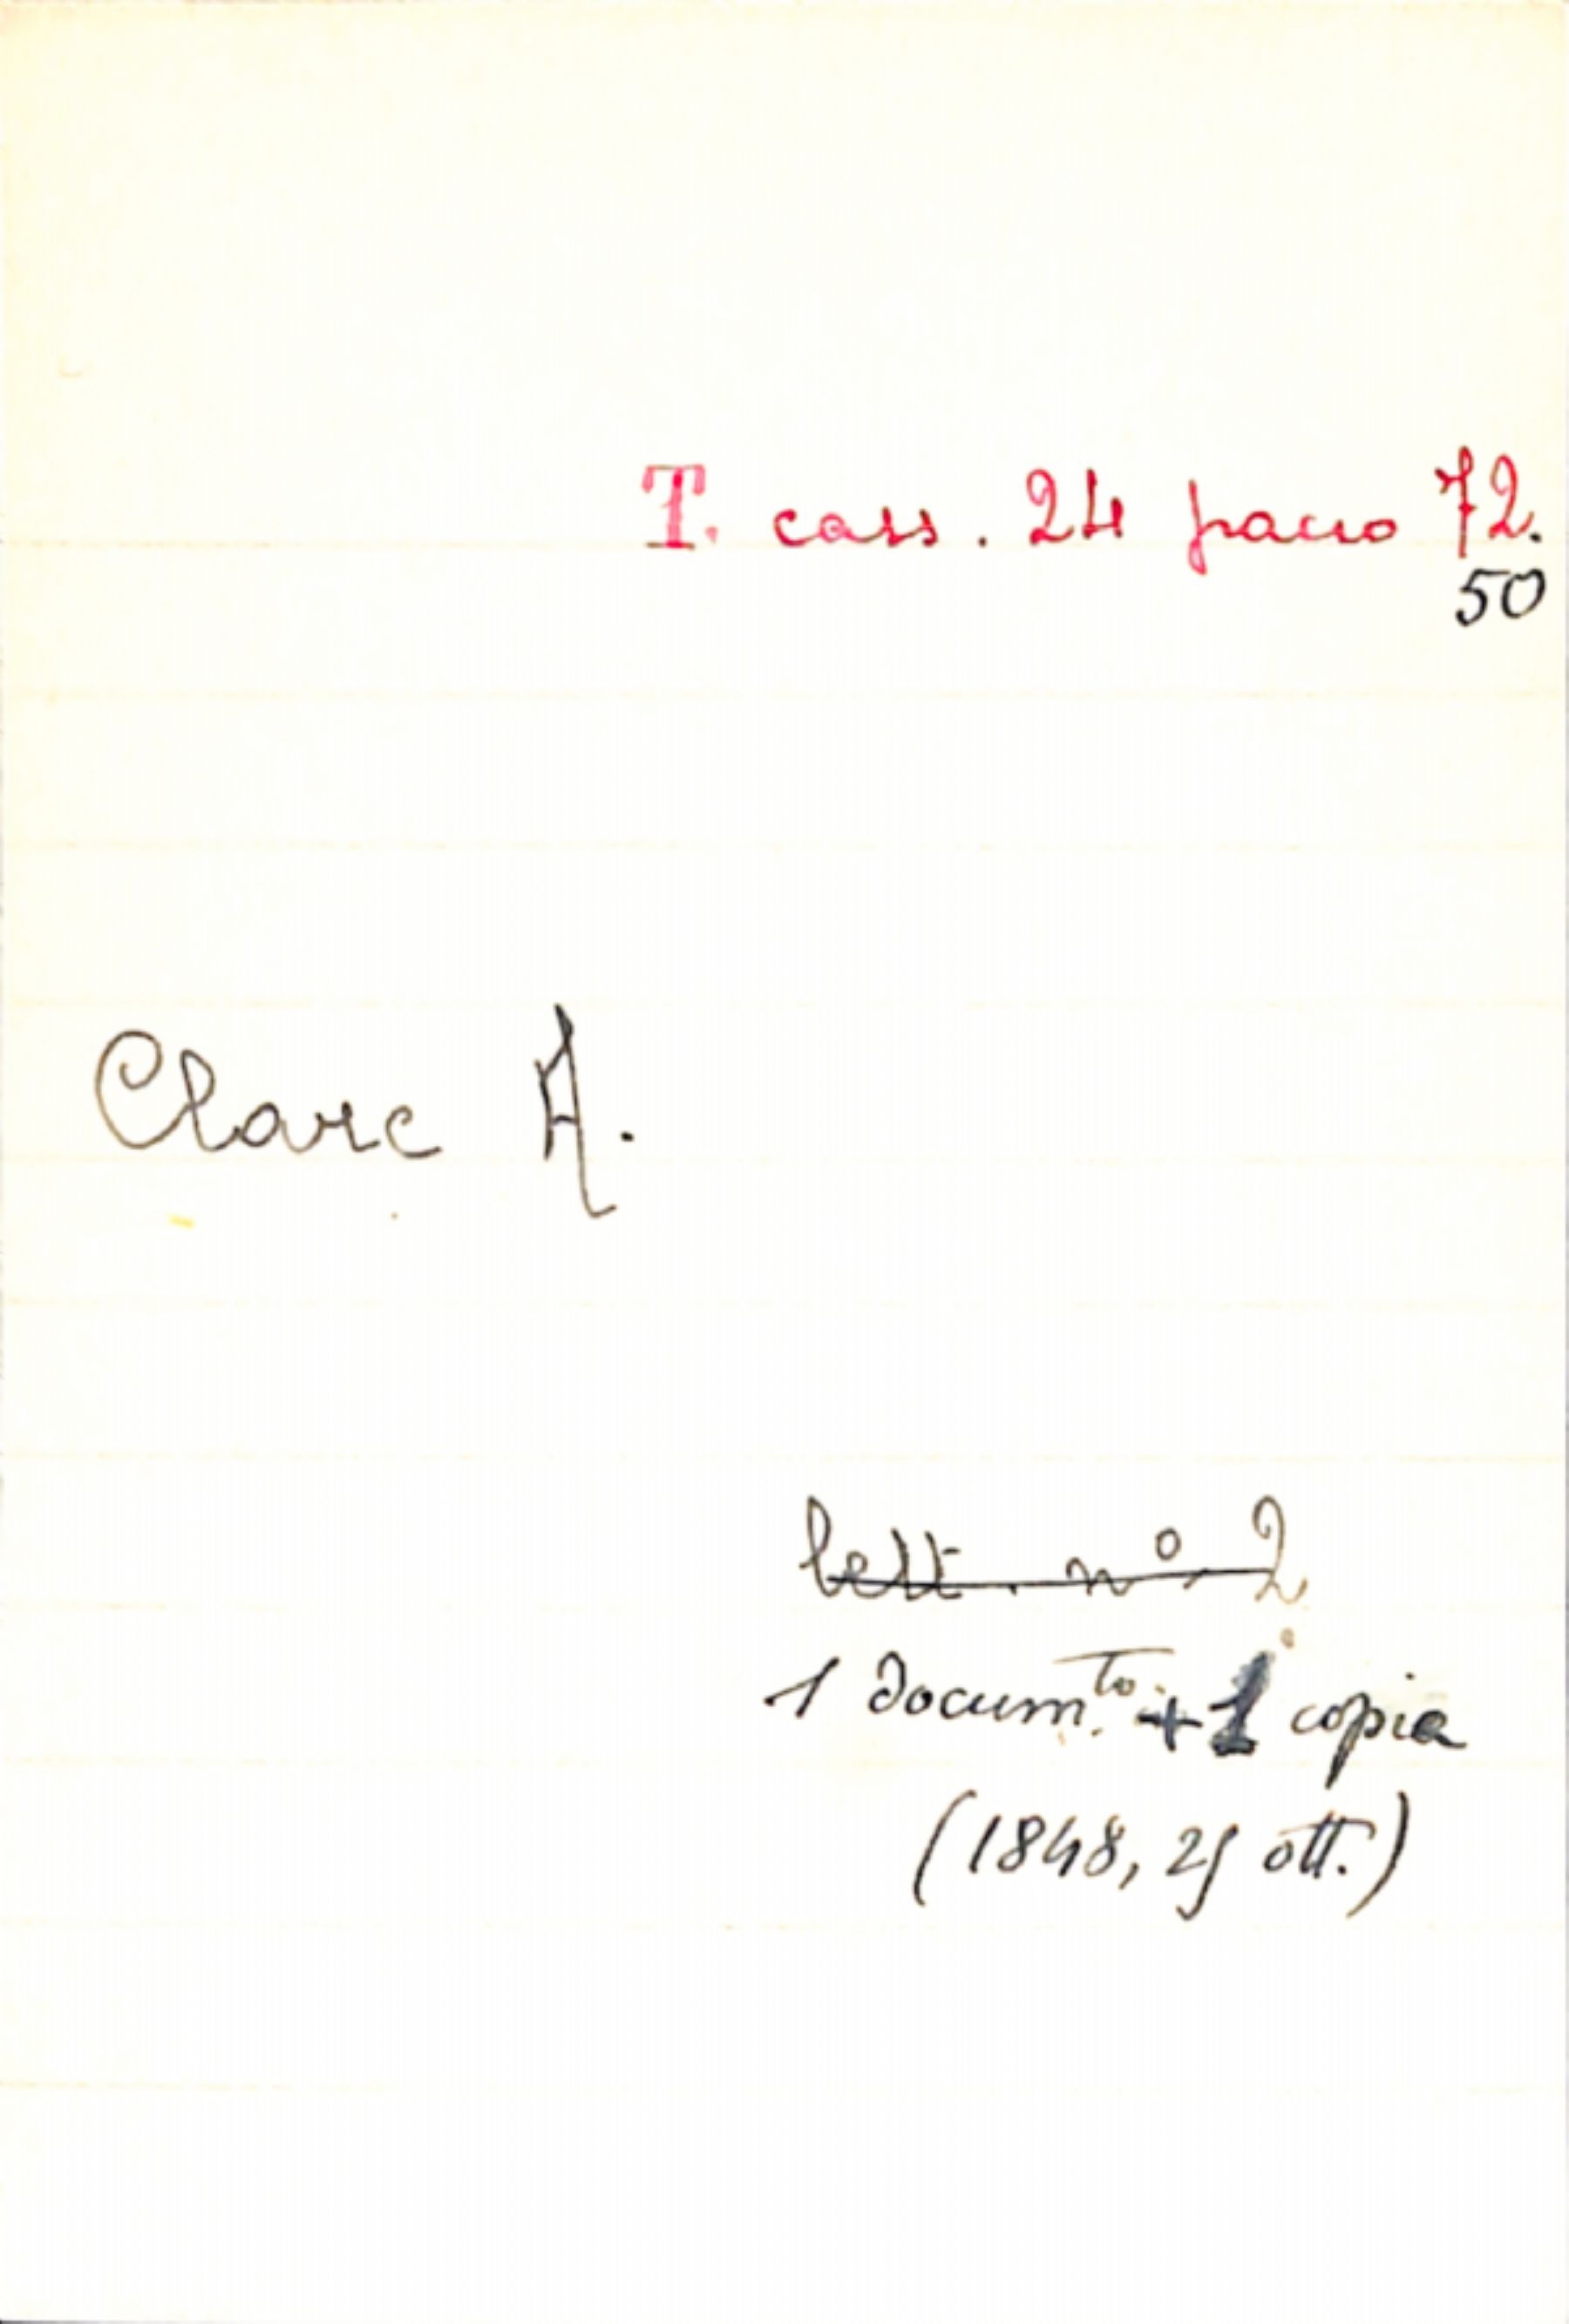 T. cass. 24 pacco 72.
50
Clarc A.
lett. n° 2
1 docum.to + 1 copia
(1848, 25 ott.)